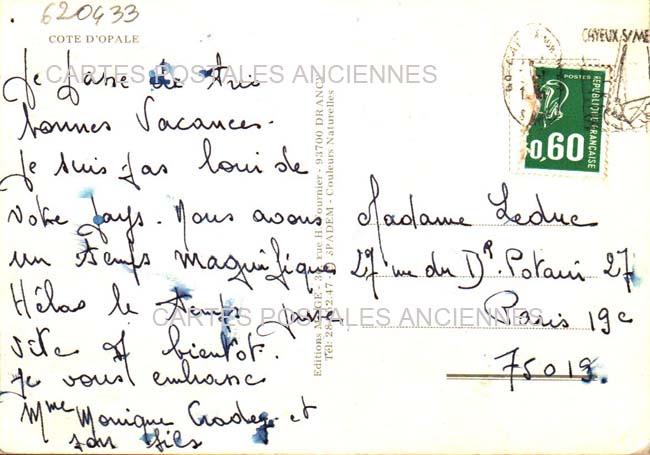 620433
COTE D'OPALE
CARTES POSTALES ANCIENNES
Je passe de trè
bonnes Vacances.
Je suis pas loin de
votre pays. Nous avons
un temps magnifiques
Hélas le temps passe
vite et bientot.
je vous embrasse
Mme Monique et
son fils
Editions rue H. Fournier - 93700 DRANCY
Tél: SPADEM - Couleurs Naturelles
CAYEUX S/MER
POSTES
REPUBLIQUE FRANÇAISE
0,60
Madame Leduc
27 rue du Dr. Potain 27
Paris 19e
75019.
CARTES POSTALES ANCIENNES